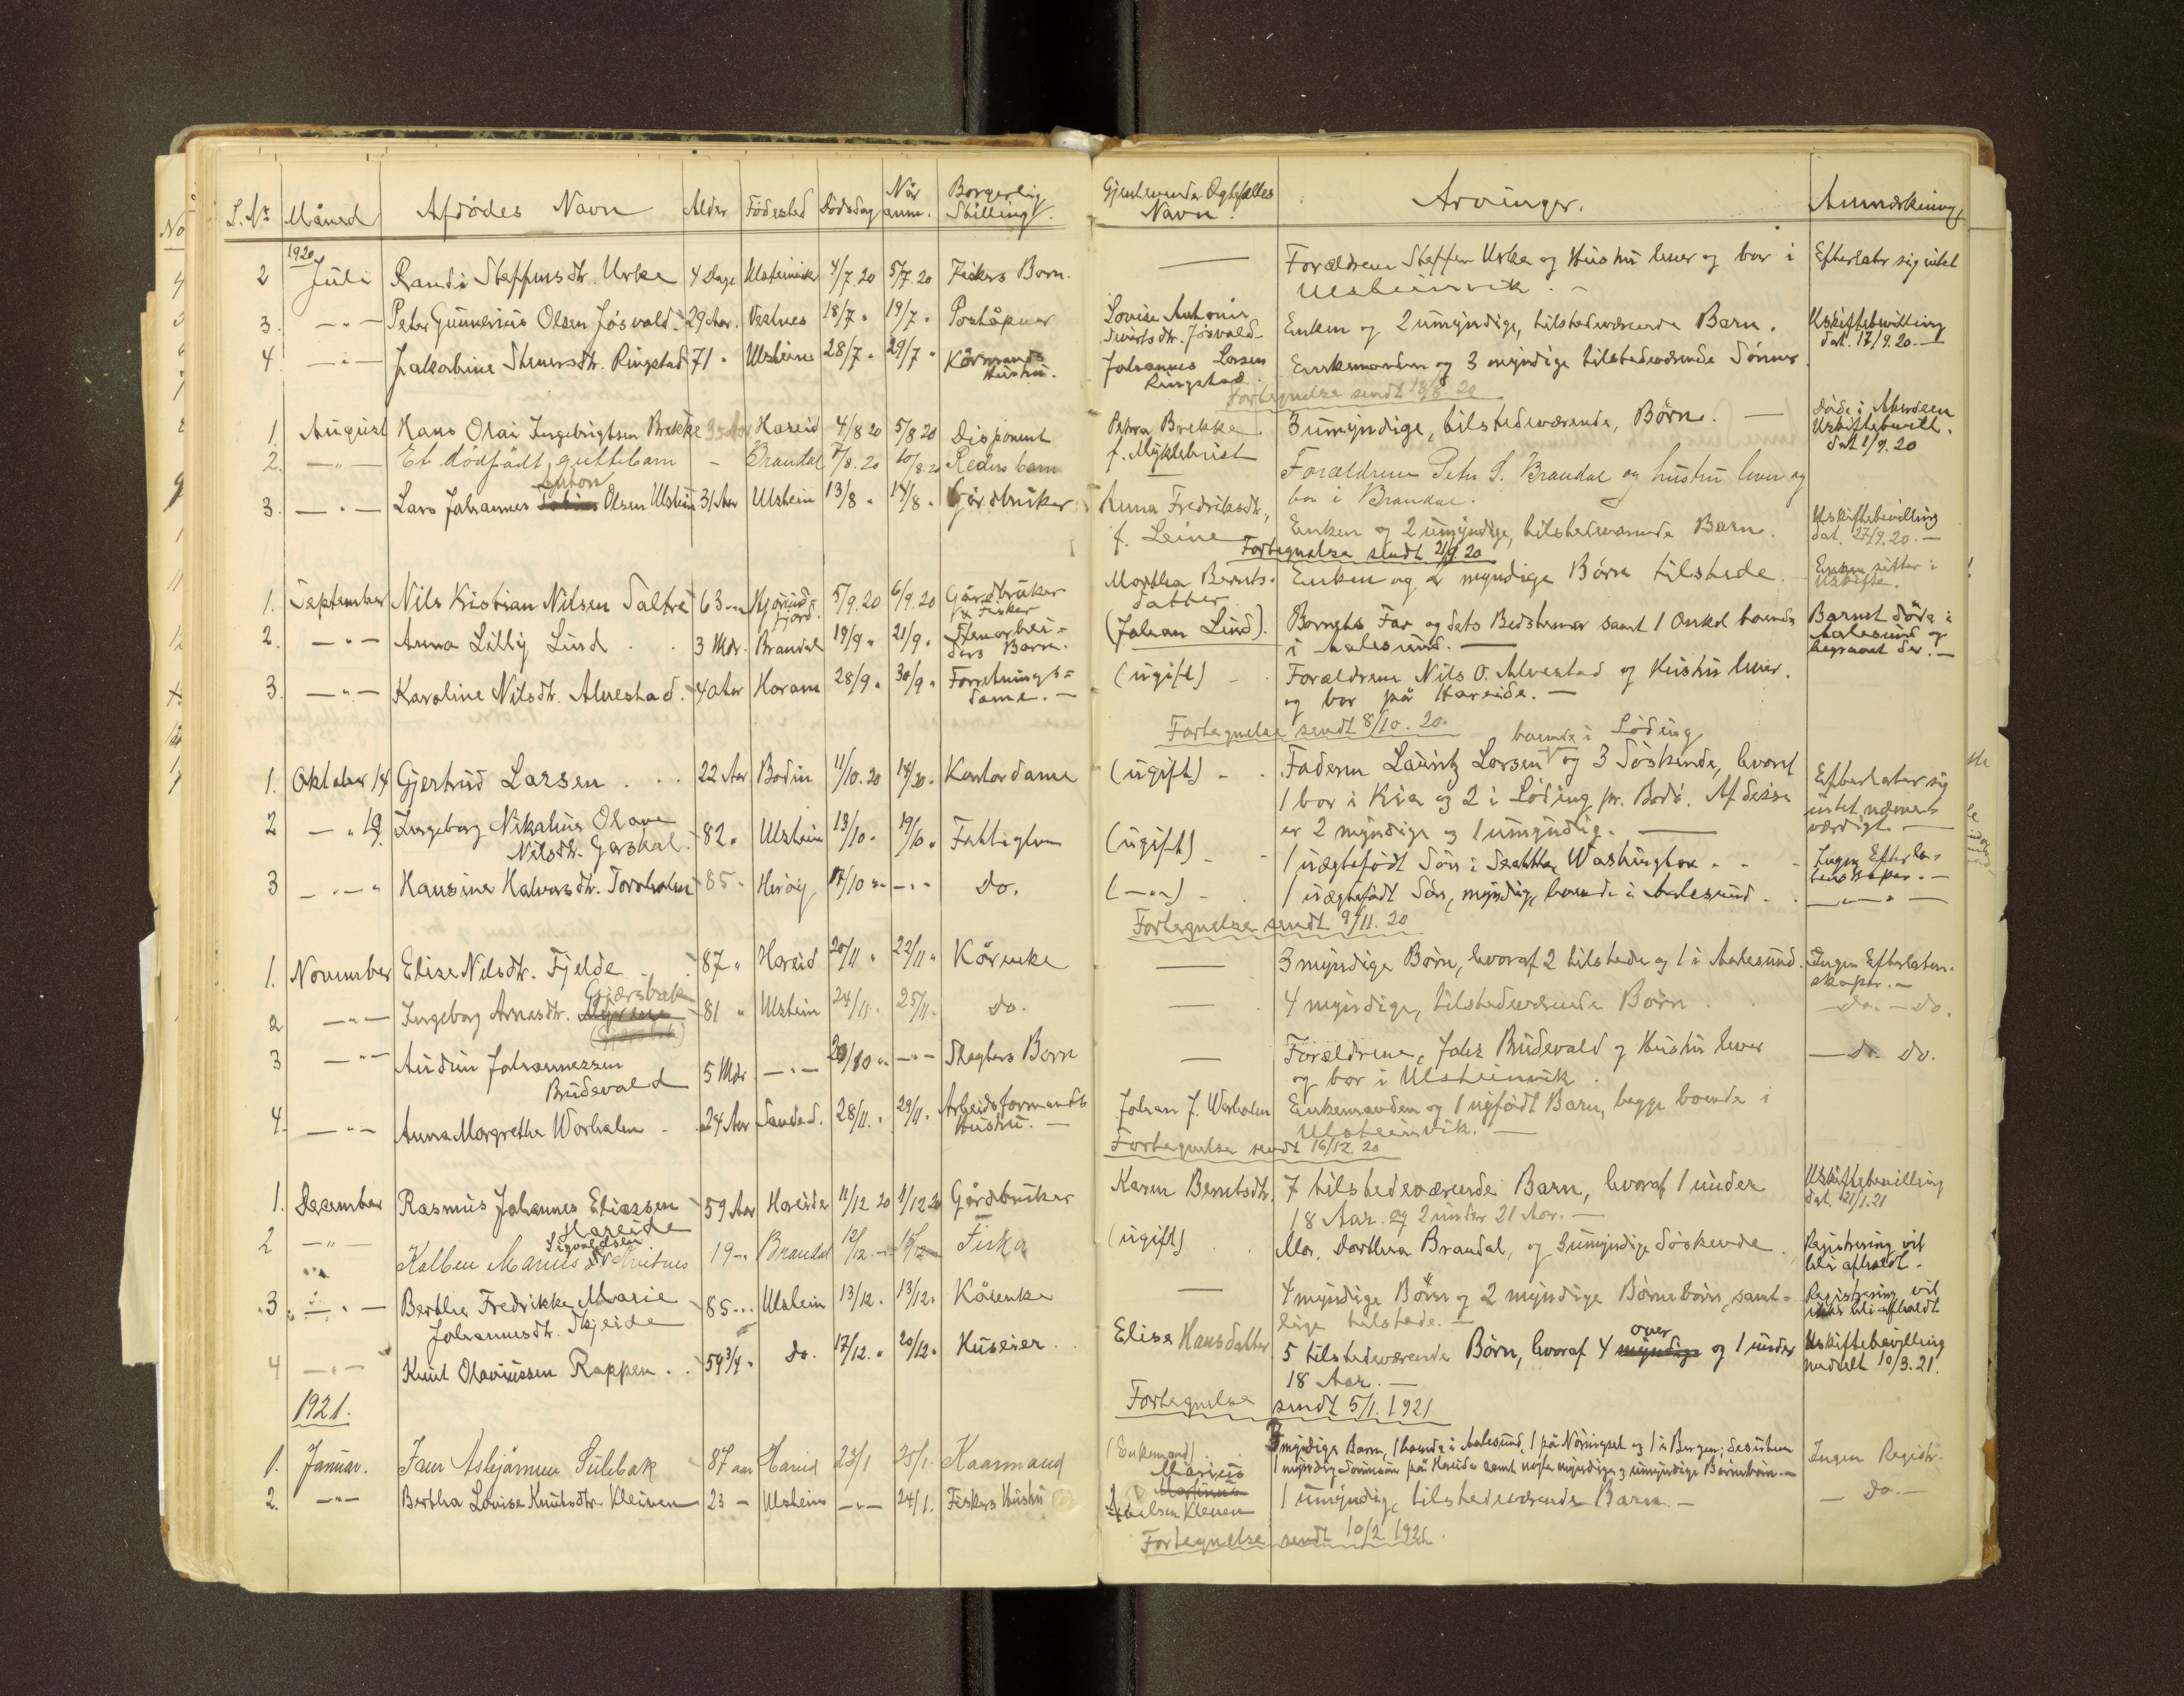 L. Nr Måned Afdödes Navn Alder Födested Dödsdag Når anm. Borgerlig Stilling. Gjenlevende Ægtefælles Navn. Arvinger. Anmærkning
1920
2 Juli Randi Steffensdtr. Urke 4 Dage Ulsteinvik 4/7.20 5/7.20 Fiskers Barn. — Forældrene Steffen Urke og Hustru lever og bor i Efterlater sig intet
Ulsteinvik. -
3. —"— Peter Gunnerius Olsen Jösvald 29 Aar. Vestnes 18/7 " 19/7 " Poståpner Lovise Antonie Enken og 2 umyndige, tilstedeværende Barn. Uskiftebevilling
Sivertsdtr. Jösvald dat. 17/9.20. —
4. —"— Jakobine Steinersdtr. Ringstad 71 " Ulstein 28/7 " 29/7 " Kårmands Johannes Larsen Enkemanden og 3 myndige tilstedeværende Sönner.
Hustru. Ringstad.
Fortegnelse sendt 18/8.20
1. August Hans Olai Ingebrigtsen Brekke 35 Aar Hareid 4/8 20 5/8 20 Disponent Petra Brekke 3 umyndige, tilstedeværende, Börn. — Döde i Aberdeen
f. Myklebust Uskiftebevill.
dat 1/9.20
2. —"— Et dödfödt guttebarn - Brandal 7/8.20 10/8.20 Reders barn — Forældrene Peter S. Brandal og hustru lever og
bor i Brandal.
Anton
3. —"— Lars Johannes Olsen Ulstein 31 Aar Ulstein 13/8 " 14/8 " Gårdbruker Anna Fredriksdtr, Enken og 2 umyndige, tilstedeværende Barn. Uskiftebevilling
f. Leine dat. 27/9.20. —
Fortegnelse sendt 21/9.20
1. September Nils Kristian Nilsen Saltre 63 — Hjörund- 5/9.20 6/9.20 Gårdbruker Martha Bernts- Enken og 2 myndige Börn tilstede. Enken sitter i
fjord. & Fisker datter Uskifte.
2. —"— Anna Lilly Lund . . 3 Mdr. Brandal 19/9 " 21/9 " Stenarbei- (Johan Lund). Barnets Far og dets Bedstemor samt 1 Onkel boende Barnet döde i
ders Barn. i Aalesund. — Aalesund og
begravet der. —
3. —"— Karoline Nilsdtr. Alvestad. 40 Aar Haram 28/9 " 30/9 " Forretnings- (ugift) - Forældrene Nils O. Alvestad og Hustru lever.
dame. — og bor på Hareide. —
Fortegnelse sendt 8/10.20.
boende i Löding
1. Oktober 14 Gjertrud Larsen . . . 22 Aar Bodin 11/10.20 14/10. Kontordame (ugift) - . Faderen Lauritz Larsen og 3 Söskende, hvoraf Efterlater sig
1 bor i Kia og 2 i Löding pr. Bodö. Af disse intet nævne-
er 2 myndige og 1 umyndig. — værdigt. —
2 —" 19. Ingeborg Nikoline Olave 82 " Ulstein 13/10 " 19/10 " Fattiglem (ugift) - - 1 uægtefödt Sön i Seattle Washington . - - Ingen Efterla-
Nilsdtr. Garshol. tenskaper. —
3 —"— " Hansine Halvorsdtr. Torvholm 85 " Heröy 14/10 " —"— Do. (—"—) - 1 uægtefödt Sön, myndig, boende i Aalesund. . —"—"—
Fortegnelse sendt 9/11.20
1. November Elise Nilsdtr. Fjelde . . 87 " Hareid 20/11 " 22/11 " Kårenke — 3 myndige Börn, hvoraf 2 tilstede og 1 i Aalesund. Ingen Efterlaten-
skaper. —
Gjærsbak
2 —"— Ingeborg Arnesdtr. 81 " Ulstein 24/11. 25/11. Do. — 4 myndige, tilstedeværende Börn . . —Do. —Do.
3 —"— Audun Johannessen 5 Mdr. —"— 20/10 " —"— Slagters Barn — Forældrene, Johs Budevald og Hustru lever —Do. Do.
Budevald og bor i Ulsteinvik.
4. —"— Anna Margrethe Worholm . . 24 Aar Sandad. 28/11. " 29/11. Arbeidsformands Johan J. Worholm Enkemanden og 1 nyfödt Barn, begge boende i
Hustru. — Ulsteinvik. —
Fortegnelse sendt 16/12 20
1. December Rasmus Johannes Eliassen 59 Aar Hareide 11/12 20 11/12 20 Gårdbruker Karen Berntsdtr. 7 tilstedeværende Barn, hvoraf 1 under Uskiftebevilling
Hareide 18 Aar. og 2 under 21 Aar. — dat. 21/1.21
Sigvaldsen
2 —"— Kolben Marius 19 — Brandal 12/12. — Fisker (ugift) . . Mor, Dorthea Brandal, og 3 umyndige Söskende. Registrering vil
bli afholdt.
3 —"— Berthe Fredrikke Marie 85 — Ulstein 13/12. 13/12. Kårenke — 4 myndige Börn og 2 myndige Börnebörn, samt- Registrering vil
Johannesdtr. Skjeide lige tilstede. — ikke bli afholdt.
over
4 —"— Knut Olaviussen Rappen . . 59 3/4 " Do. 17/12. " 20/12. Huseier . Elise Hansdatter 5 tilstedeværende Börn, hvoraf 4 myndige og 1 under Uskiftebevilling
18 Aar. — meddelt 10/3.21.
1921. Fortegnelse sendt 5/1.1921
1. Januar. Jens Asbjörnsen Sulebak 87 aar Hareid 23/1 25/1. Kaarmand (Enkemand) 3 myndige Barn, 1 boende i Aalesund, 1 på Nörvingset og 1 i Bergen; desuten Ingen Registr.
1 myndig Sönnesön på Hareide samt nogle myndige og umyndige Barnebörn. —
Marius
2. —"— Bertha Lovise Knutsdtr. Kleiven 23 — Ulstein —"— 24/1. Fiskers Hustru Kleven 1 umyndig, tilstedeværende Barn. — — Do. —
Fortegnelse sendt 10/2 1921.